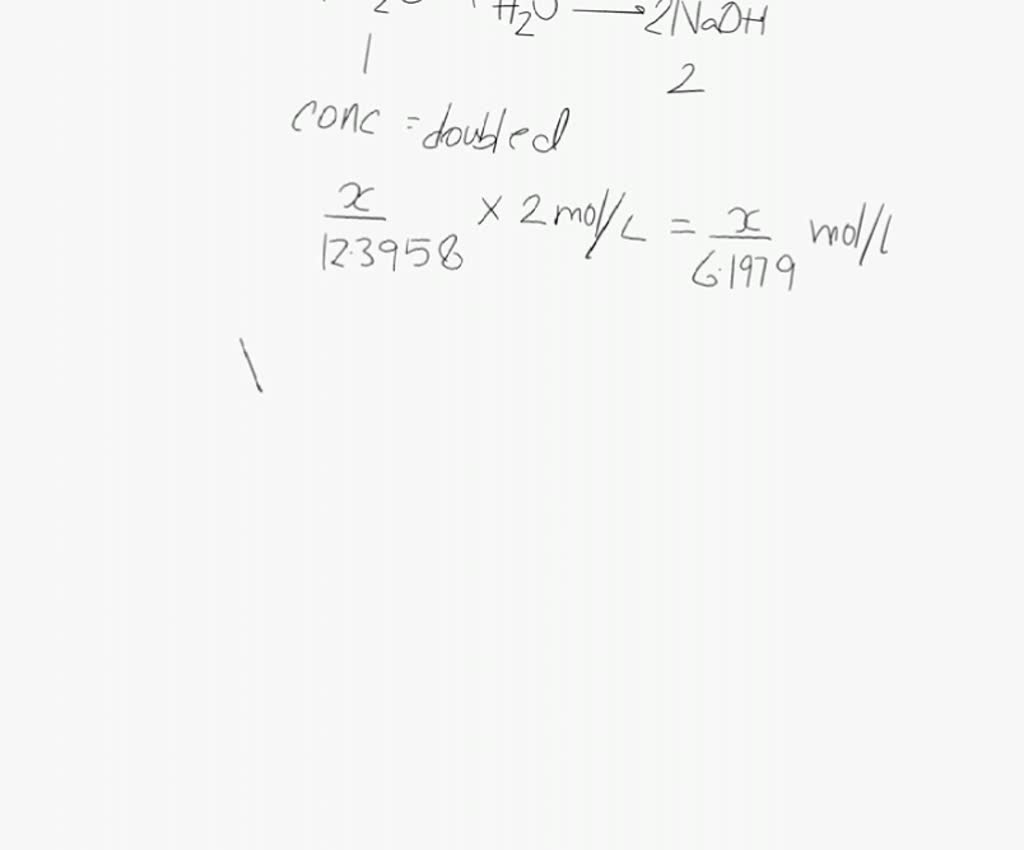 2O + H2O ⟶ 2NaOH
1 2
conc = doubled
x/12.3958 × 2 mol/L = x/6.1979 mol/L
\